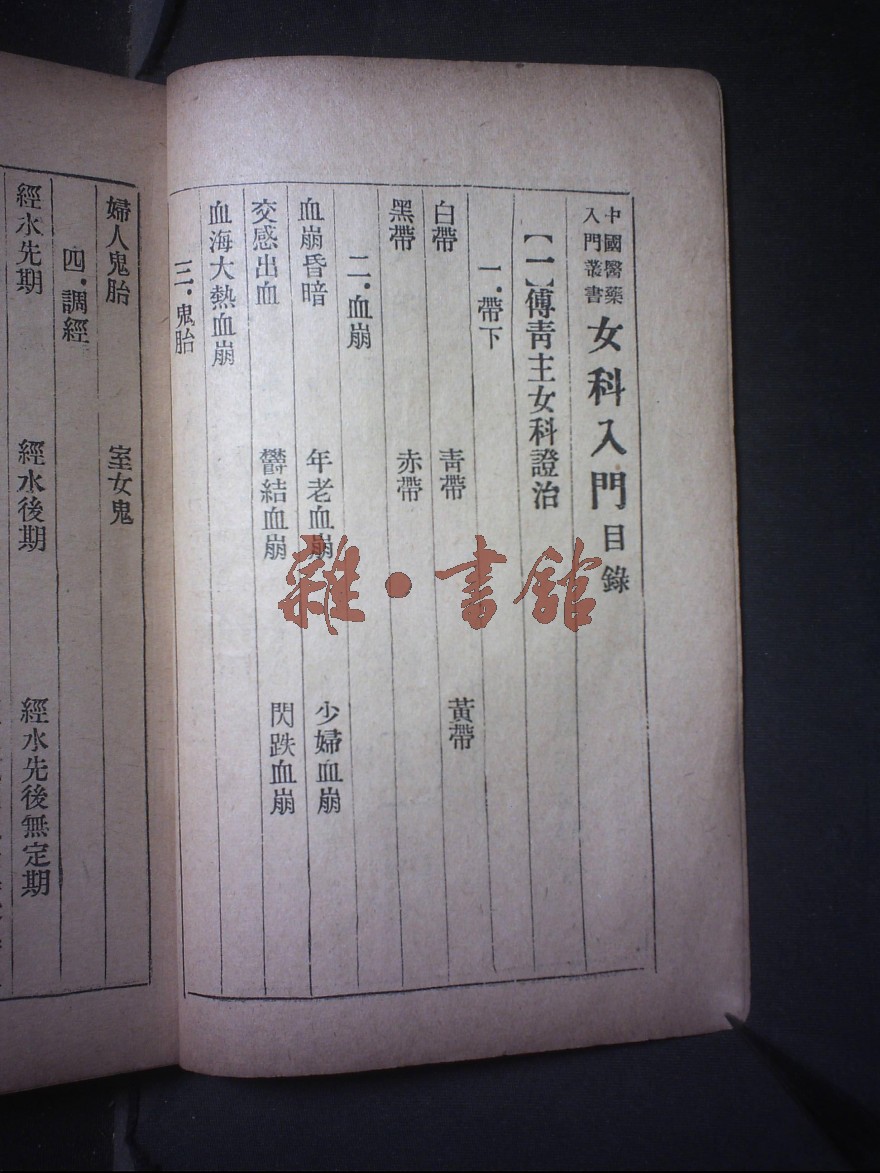 中國醫藥
入門叢書
女科入門目錄
【一】傅青主女科證治
一．帶下
白帶　青帶　黃帶
黑帶　赤帶
二．血崩
血崩昏暗　年老血崩　少婦血崩
交感出血　鬱結血崩　閃跌血崩
血海大熱血崩
三．鬼胎
婦人鬼胎　室女鬼
四．調經
經水先期　經水後期　經水先後無定期
雜・書館